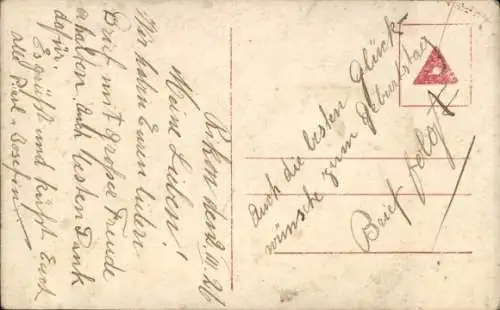 den 2. III. 26
Meine Lieben!
Wir haben Euren lieben
Brief mit großer Freude
erhalten auch besten Dank
dafür.
Es grüßt und küsst Euch
alle Josefin
Auch die besten Glück-
wünsche zum Geburtstag
Brief folgt